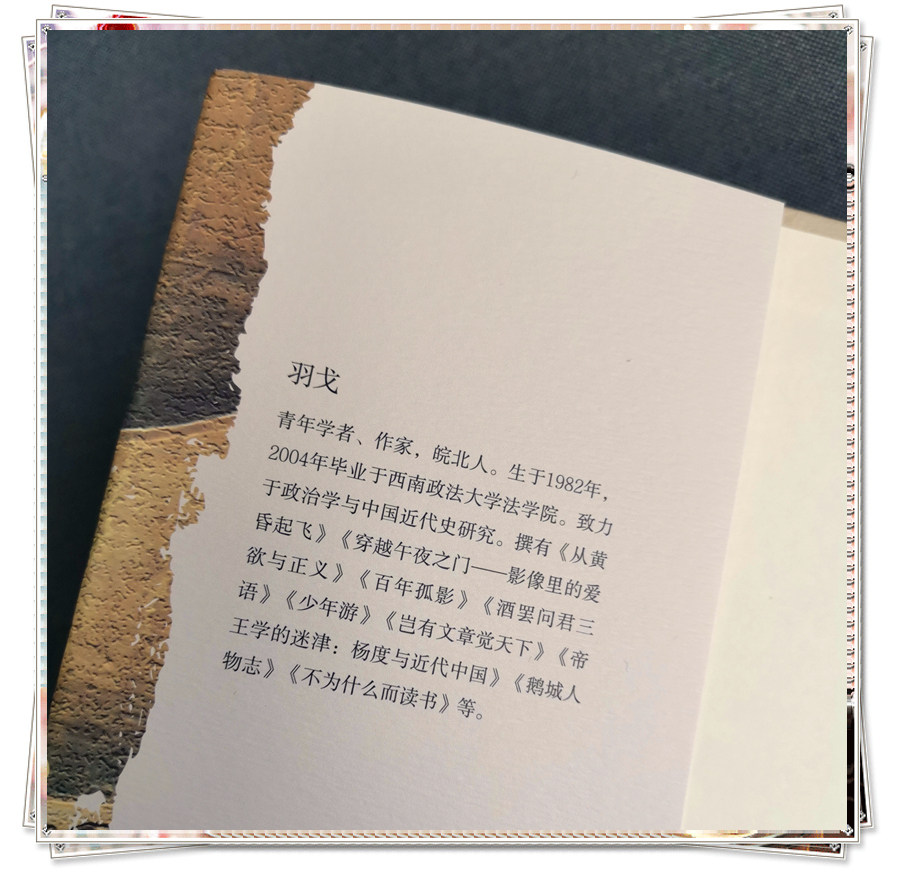 羽戈
青年学者、作家，皖北人。生于1982年，
2004年毕业于西南政法大学法学院。致力
于政治学与中国近代史研究。撰有《从黄
昏起飞》《穿越午夜之门——影像里的爱
欲与正义》《百年孤影》《酒罢问君三
语》《少年游》《岂有文章觉天下》《帝
王学的迷津：杨度与近代中国》《鹅城人
物志》《不为什么而读书》等。